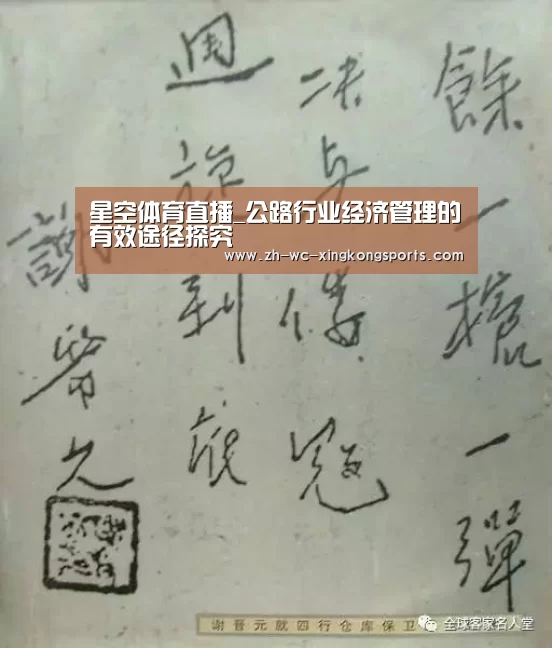 餘一槍一彈
决与倭寇
週旋到底
謝晋元
星空体育直播_公路行业经济管理的
有效途径探究
www.zh-wc-xingkongsports.com
谢晋元就四行仓库保卫
全球客家名人堂